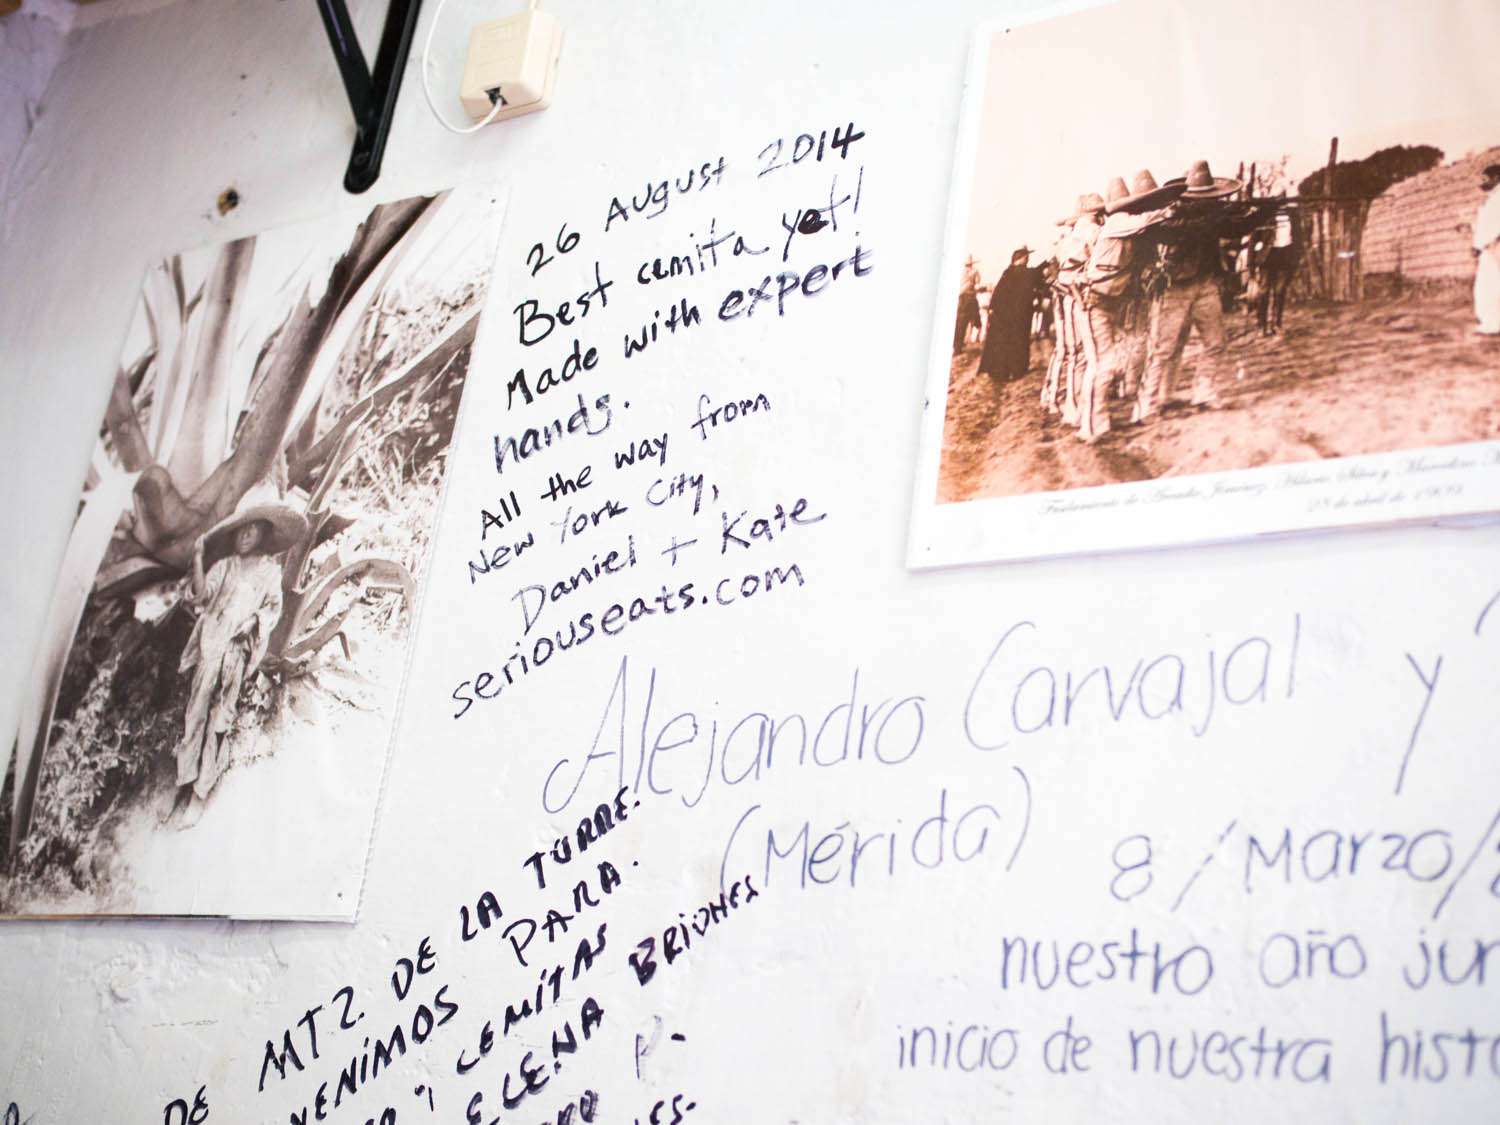 26 August 2014
Best cemita yet!
Made with expert
hands.
All the way from
New York City,
Daniel + Kate
seriouseats.com
Fusilamiento de Arcadio Jiménez, Hilario Silva y Marcelino M
28 de abril de 1909
Alejandro Carvajal y
(Mérida)
8/Marzo/
nuestro año jun
inicio de nuestra histo
DE MTZ. DE LA TORRE.
VENÍMOS PARA.
CEMITAS
ELENA BRIONES